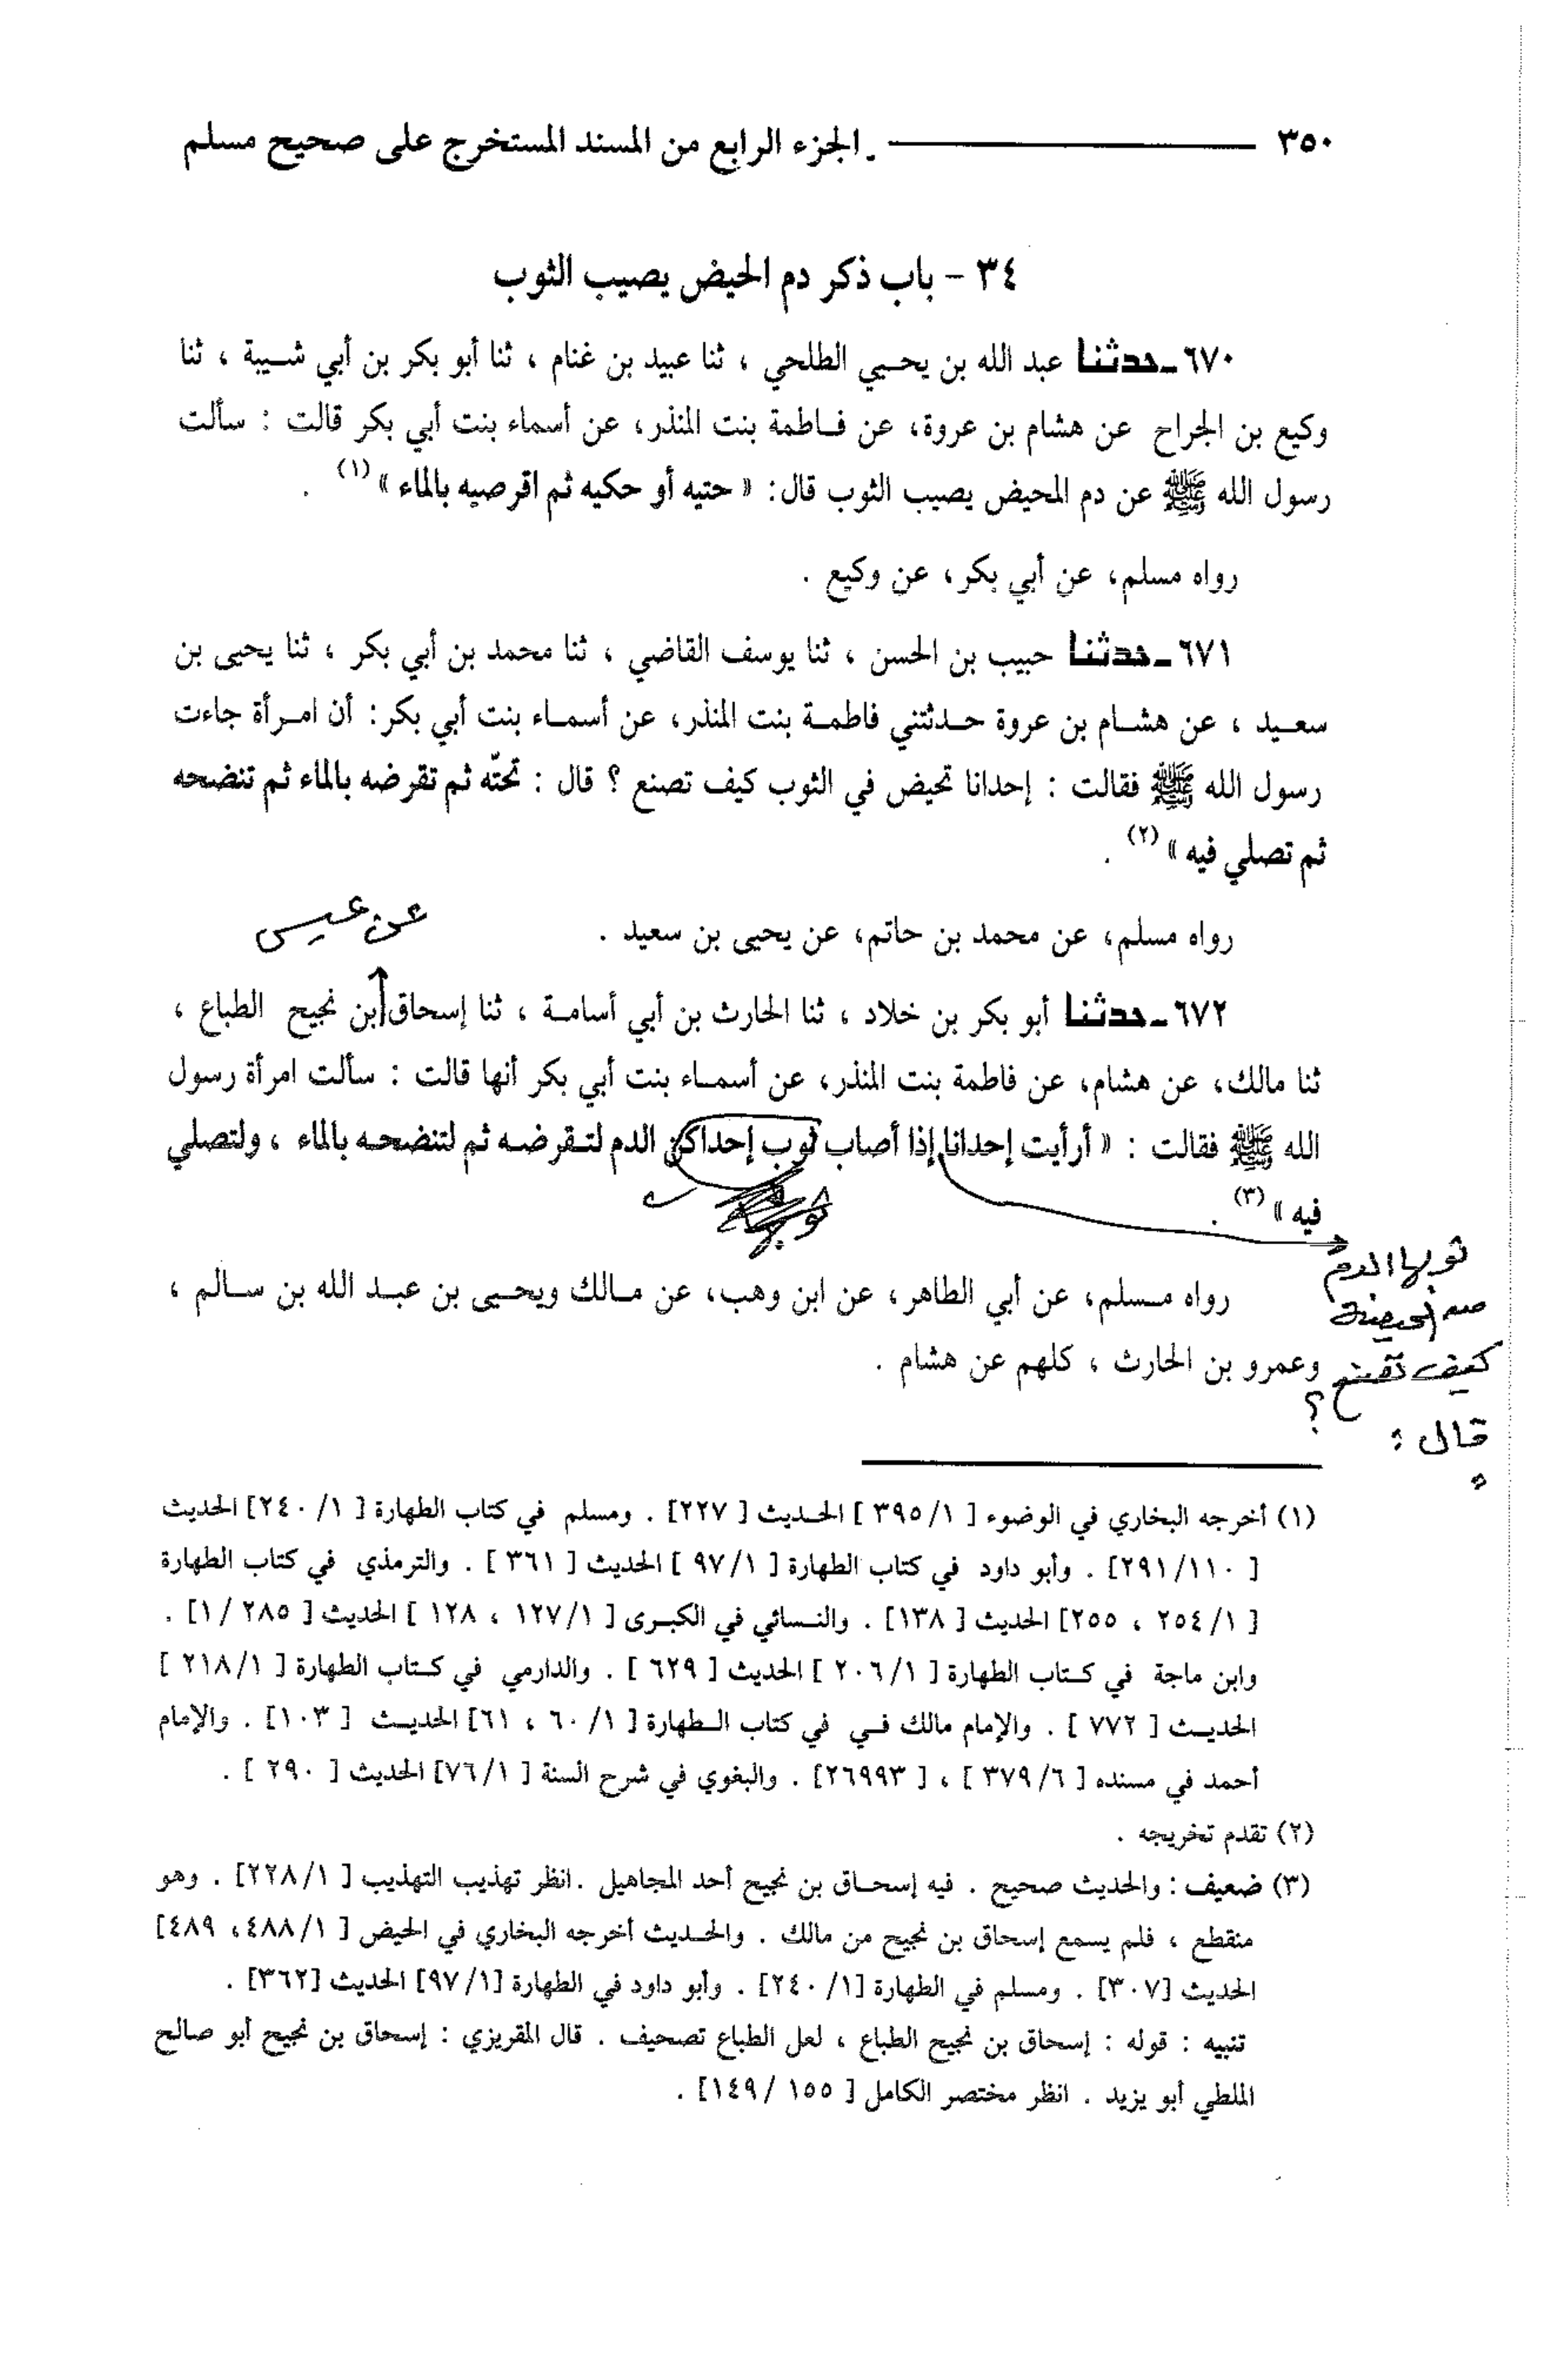 ٣٥٠ ـــــــ الجزء الرابع من المسند المستخرج على صحيح مسلم
٣٤ - باب ذكر دم الحيض يصيب الثوب
٦٧٠ـ حدثنا عبد الله بن يحيي الطلحي ، ثنا عبيد بن غنام ، ثنا أبو بكر بن أبي شيبة ، ثنا
وكيع بن الجراح عن هشام بن عروة، عن فاطمة بنت المنذر، عن أسماء بنت أبي بكر قالت : سألت
رسول الله ﷺ عن دم المحيض يصيب الثوب قال: « حتيه أو حكيه ثم اقرصيه بالماء » (١) .
رواه مسلم، عن أبي بكر، عن وكيع .
٦٧١ـ حدثنا حبيب بن الحسن ، ثنا يوسف القاضي ، ثنا محمد بن أبي بكر ، ثنا يحيى بن
سعيد ، عن هشام بن عروة حدثتني فاطمة بنت المنذر، عن أسماء بنت أبي بكر: أن امرأة جاءت
رسول الله ﷺ فقالت : إحدانا تحيض في الثوب كيف تصنع ؟ قال : تحتّه ثم تقرضه بالماء ثم تنضحه
ثم تصلي فيه » (٢) .
رواه مسلم، عن محمد بن حاتم، عن يحيى بن سعيد .
عن عيسى
٦٧٢ـ حدثنا أبو بكر بن خلاد ، ثنا الحارث بن أبي أسامة ، ثنا إسحاق ابن نجيح الطباع ،
ثنا مالك، عن هشام، عن فاطمة بنت المنذر، عن أسماء بنت أبي بكر أنها قالت : سألت امرأة رسول
الله ﷺ فقالت : « أرأيت إحدانا إذا أصاب ثوب إحداكن الدم لتقرضه ثم لتنضحه بالماء ، ولتصلي
فيه » (٣) .
ثوبها الدم
من الحيضة
كيف تصنع
؟
قال :
رواه مسلم، عن أبي الطاهر، عن ابن وهب، عن مالك ويحيى بن عبد الله بن سالم ،
وعمرو بن الحارث ، كلهم عن هشام .
(١) أخرجه البخاري في الوضوء [ ١/ ٣٩٥ ] الحديث [ ٢٢٧] . ومسلم في كتاب الطهارة [ ١/ ٢٤٠] الحديث
[ ١١٠/ ٢٩١] . وأبو داود في كتاب الطهارة [ ١/ ٩٧ ] الحديث [ ٣٦١ ] . والترمذي في كتاب الطهارة
[ ١/ ٢٥٤ ، ٢٥٥] الحديث [ ١٣٨] . والنسائي في الكبرى [ ١/ ١٢٧ ، ١٢٨ ] الحديث [ ٢٨٥ /١] .
وابن ماجة في كتاب الطهارة [ ١/ ٢٠٦ ] الحديث [ ٦٢٩ ] . والدارمي في كتاب الطهارة [ ١/ ٢١٨ ]
الحديث [ ٧٧٢ ] . والإمام مالك في في كتاب الطهارة [ ١/ ٦٠ ، ٦١] الحديث [ ١٠٣] . والإمام
أحمد في مسنده [ ٦/ ٣٧٩ ] ، [ ٢٦٩٩٣] . والبغوي في شرح السنة [ ١/ ٧٦] الحديث [ ٢٩٠ ] .
(٢) تقدم تخريجه .
(٣) ضعيف : والحديث صحيح . فيه إسحاق بن نجيح أحد المجاهيل .انظر تهذيب التهذيب [ ١/ ٢٢٨] . وهو
منقطع ، فلم يسمع إسحاق بن نجيح من مالك . والحديث أخرجه البخاري في الحيض [ ١/ ٤٨٨، ٤٨٩]
الحديث [٣٠٧] . ومسلم في الطهارة [١/ ٢٤٠] . وأبو داود في الطهارة [١/ ٩٧] الحديث [٣٦٢] .
تنبيه : قوله : إسحاق بن نجيح الطباع ، لعل الطباع تصحيف . قال المقريزي : إسحاق بن نجيح أبو صالح
الملطي أبو يزيد . انظر مختصر الكامل [ ١٥٥ /١٤٩] .